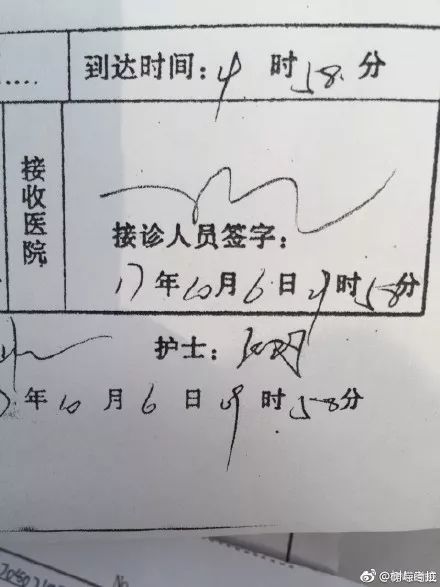 到达时间:4时58分
接收医院
接诊人员签字:
17年10月6日4时58分
护士:
年10月6日4时58分
No
@树与考拉